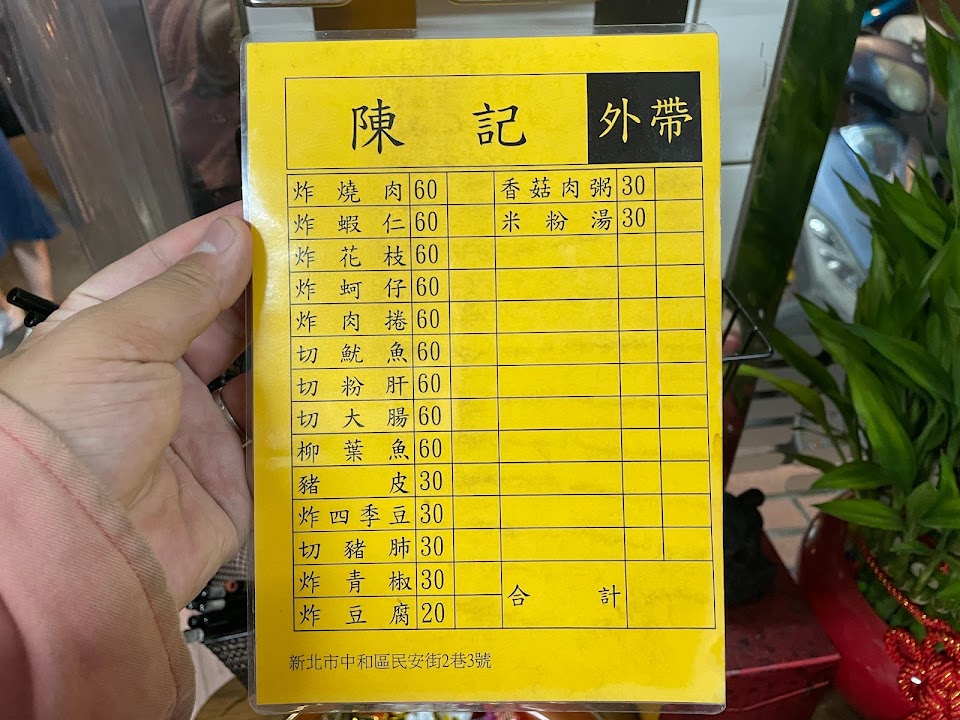 陳記 外帶
炸燒肉 60
炸蝦仁 60
炸花枝 60
炸蚵仔 60
炸肉捲 60
切魷魚 60
切粉肝 60
切大腸 60
柳葉魚 60
豬皮 30
炸四季豆 30
切豬肺 30
炸青椒 30
炸豆腐 20
香菇肉粥 30
米粉湯 30
合計
新北市中和區民安街2巷3號